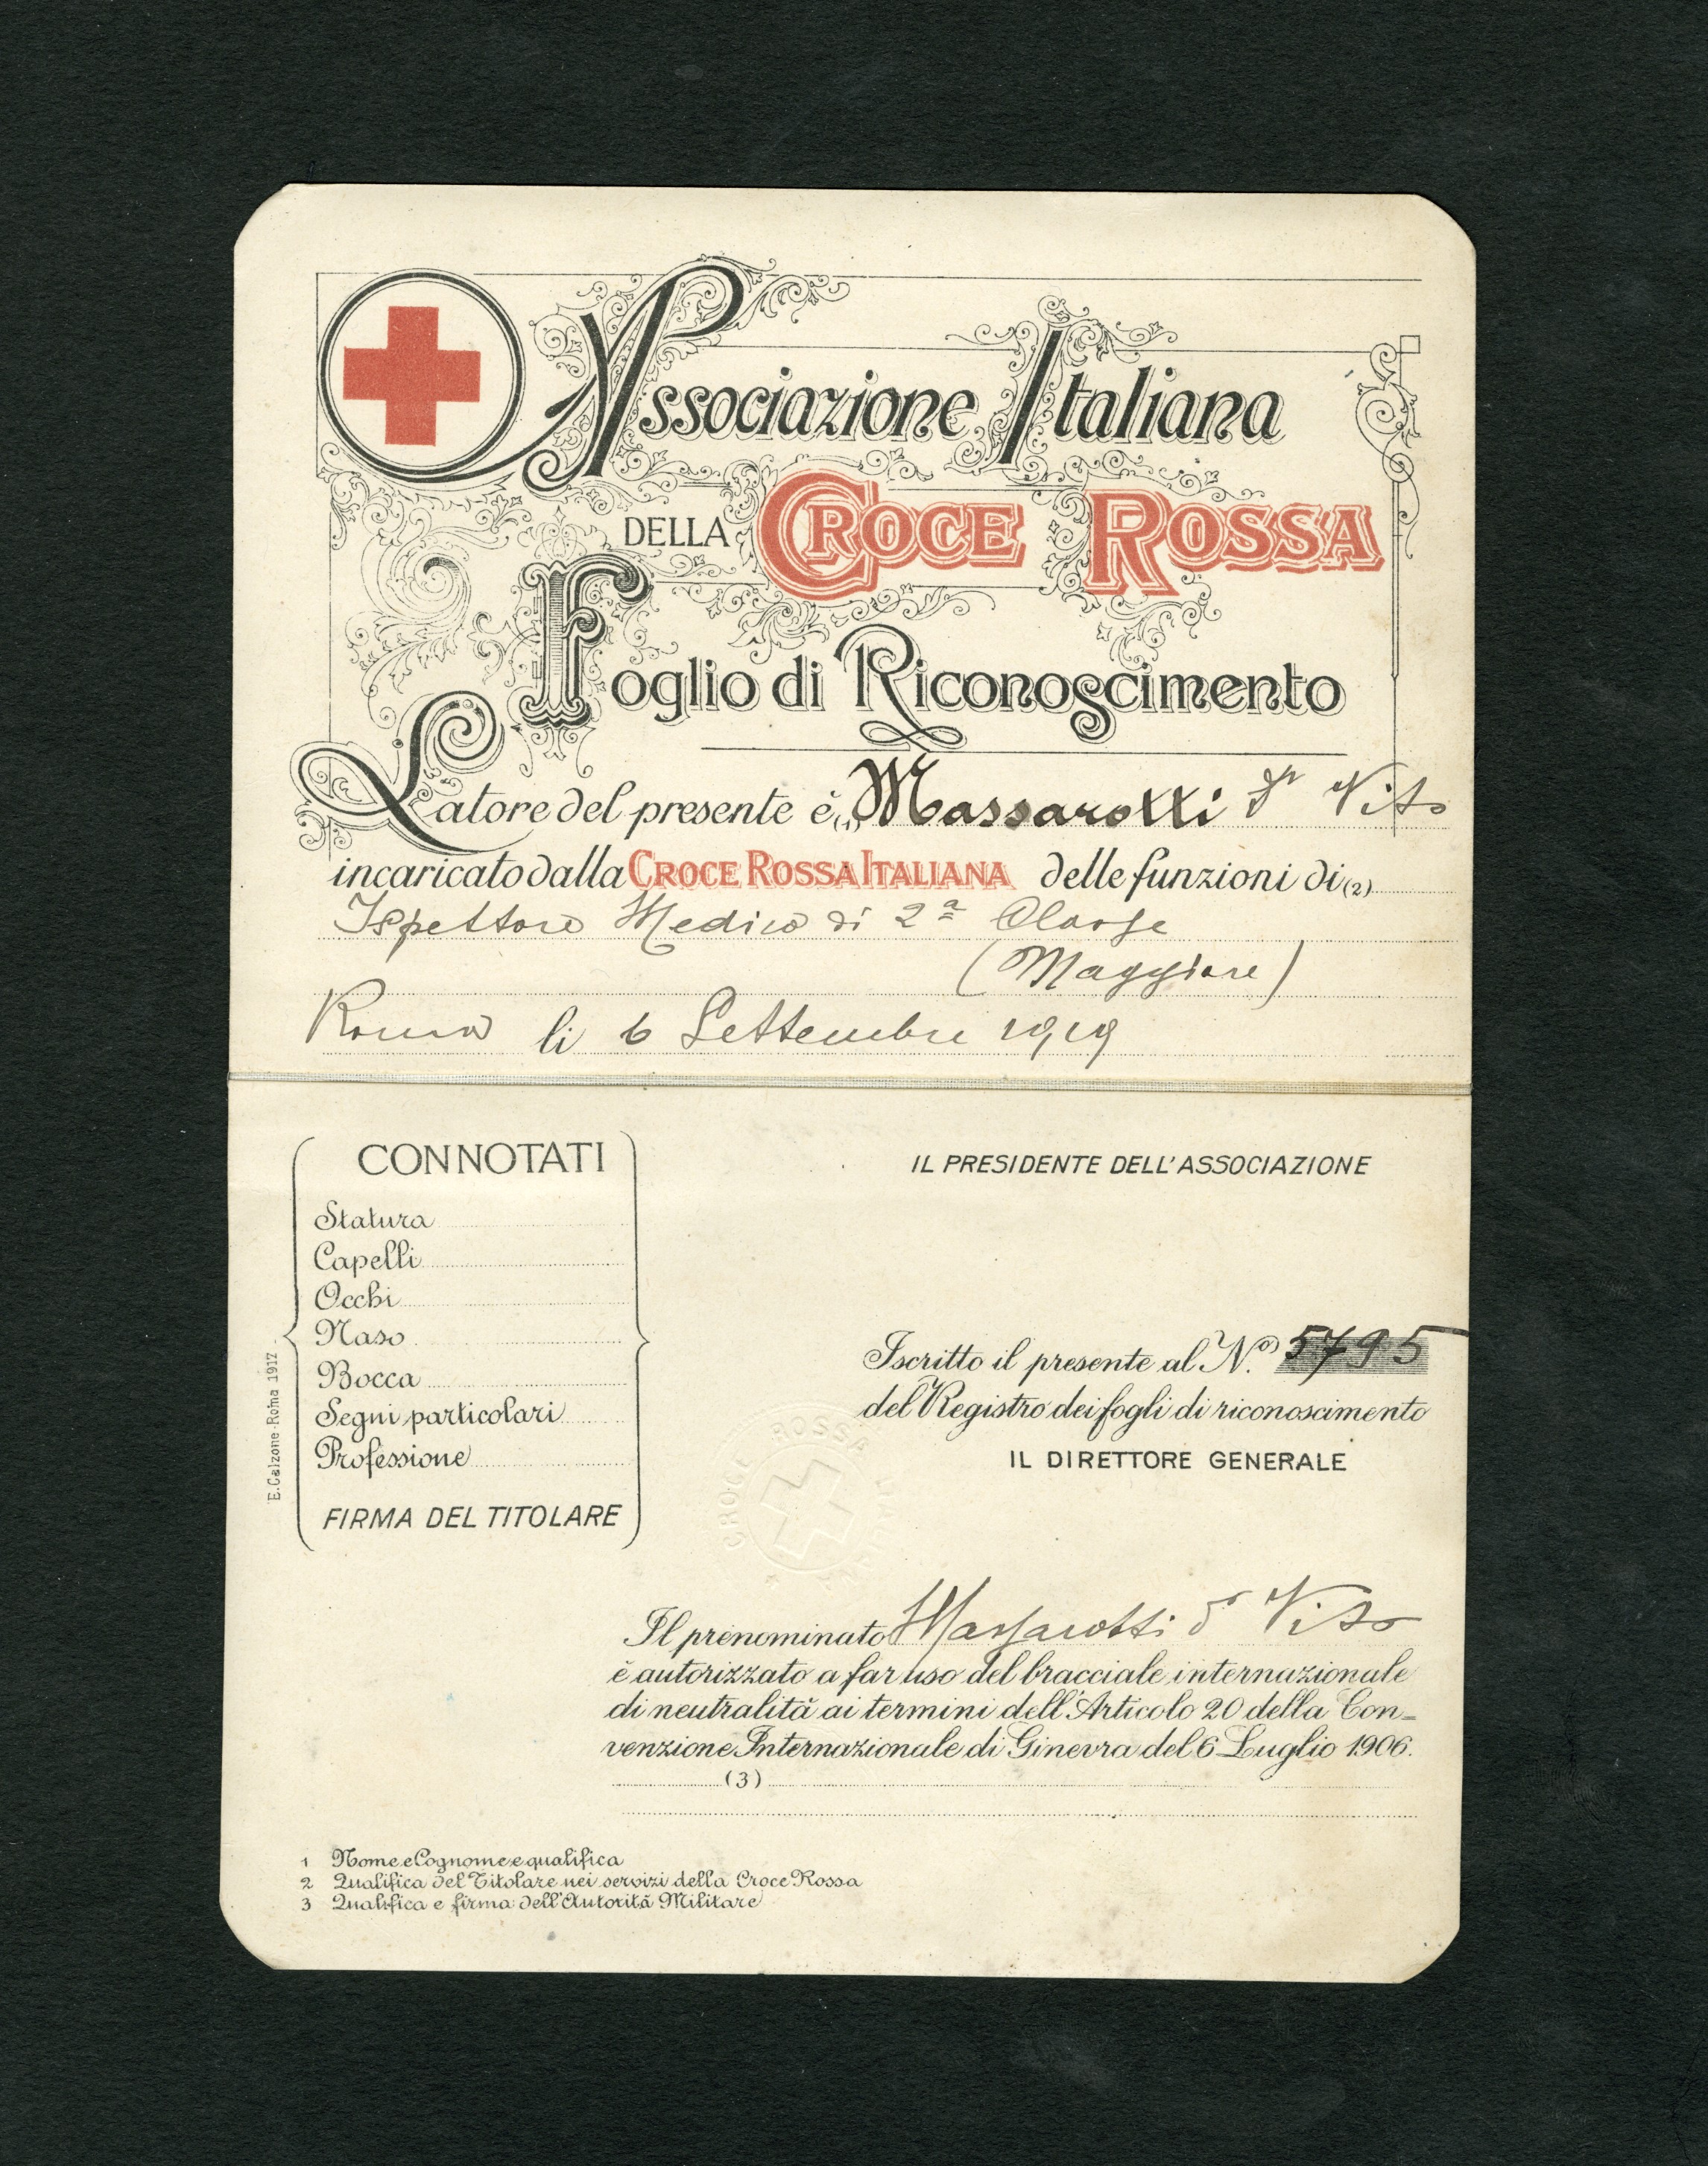 Associazione Italiana
DELLA CROCE ROSSA
Foglio di Riconoscimento
Latore del presente è (1) Massarotti Dr Vito
incaricato dalla CROCE ROSSA ITALIANA delle funzioni di (2)
Ispettore Medico di 2ª Classe
(Maggiore)
Roma li 6 Settembre 1919
CONNOTATI
Statura
Capelli
Occhi
Naso
Bocca
Segni particolari
Professione
FIRMA DEL TITOLARE
E. Calzone-Roma 1917
IL PRESIDENTE DELL'ASSOCIAZIONE
Iscritto il presente al N.º 5795
del Registro dei fogli di riconoscimento
IL DIRETTORE GENERALE
CROCE ROSSA
Il prenominato Massarotti Dr Vito
è autorizzato a far uso del bracciale internazionale
di neutralità ai termini dell'Articolo 20 della Con=
venzione Internazionale di Ginevra del 6 Luglio 1906.
(3)
1 Nome e Cognome e qualifica
2 Qualifica del Titolare nei servizi della Croce Rossa
3 Qualifica e firma dell'Autorità Militare